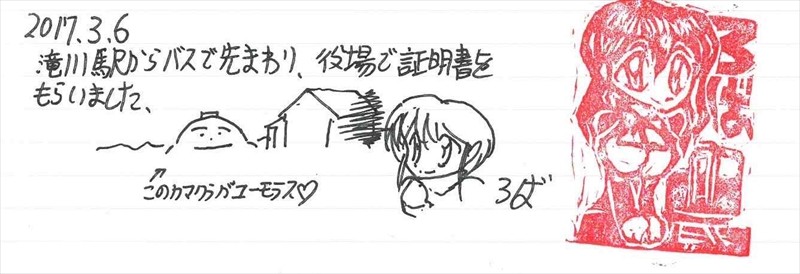 2017.3.6
滝川駅からバスで先まわり、役場で証明書を
もらいました、
↑
このカマクラがユーモラス♡
ろば
ろば